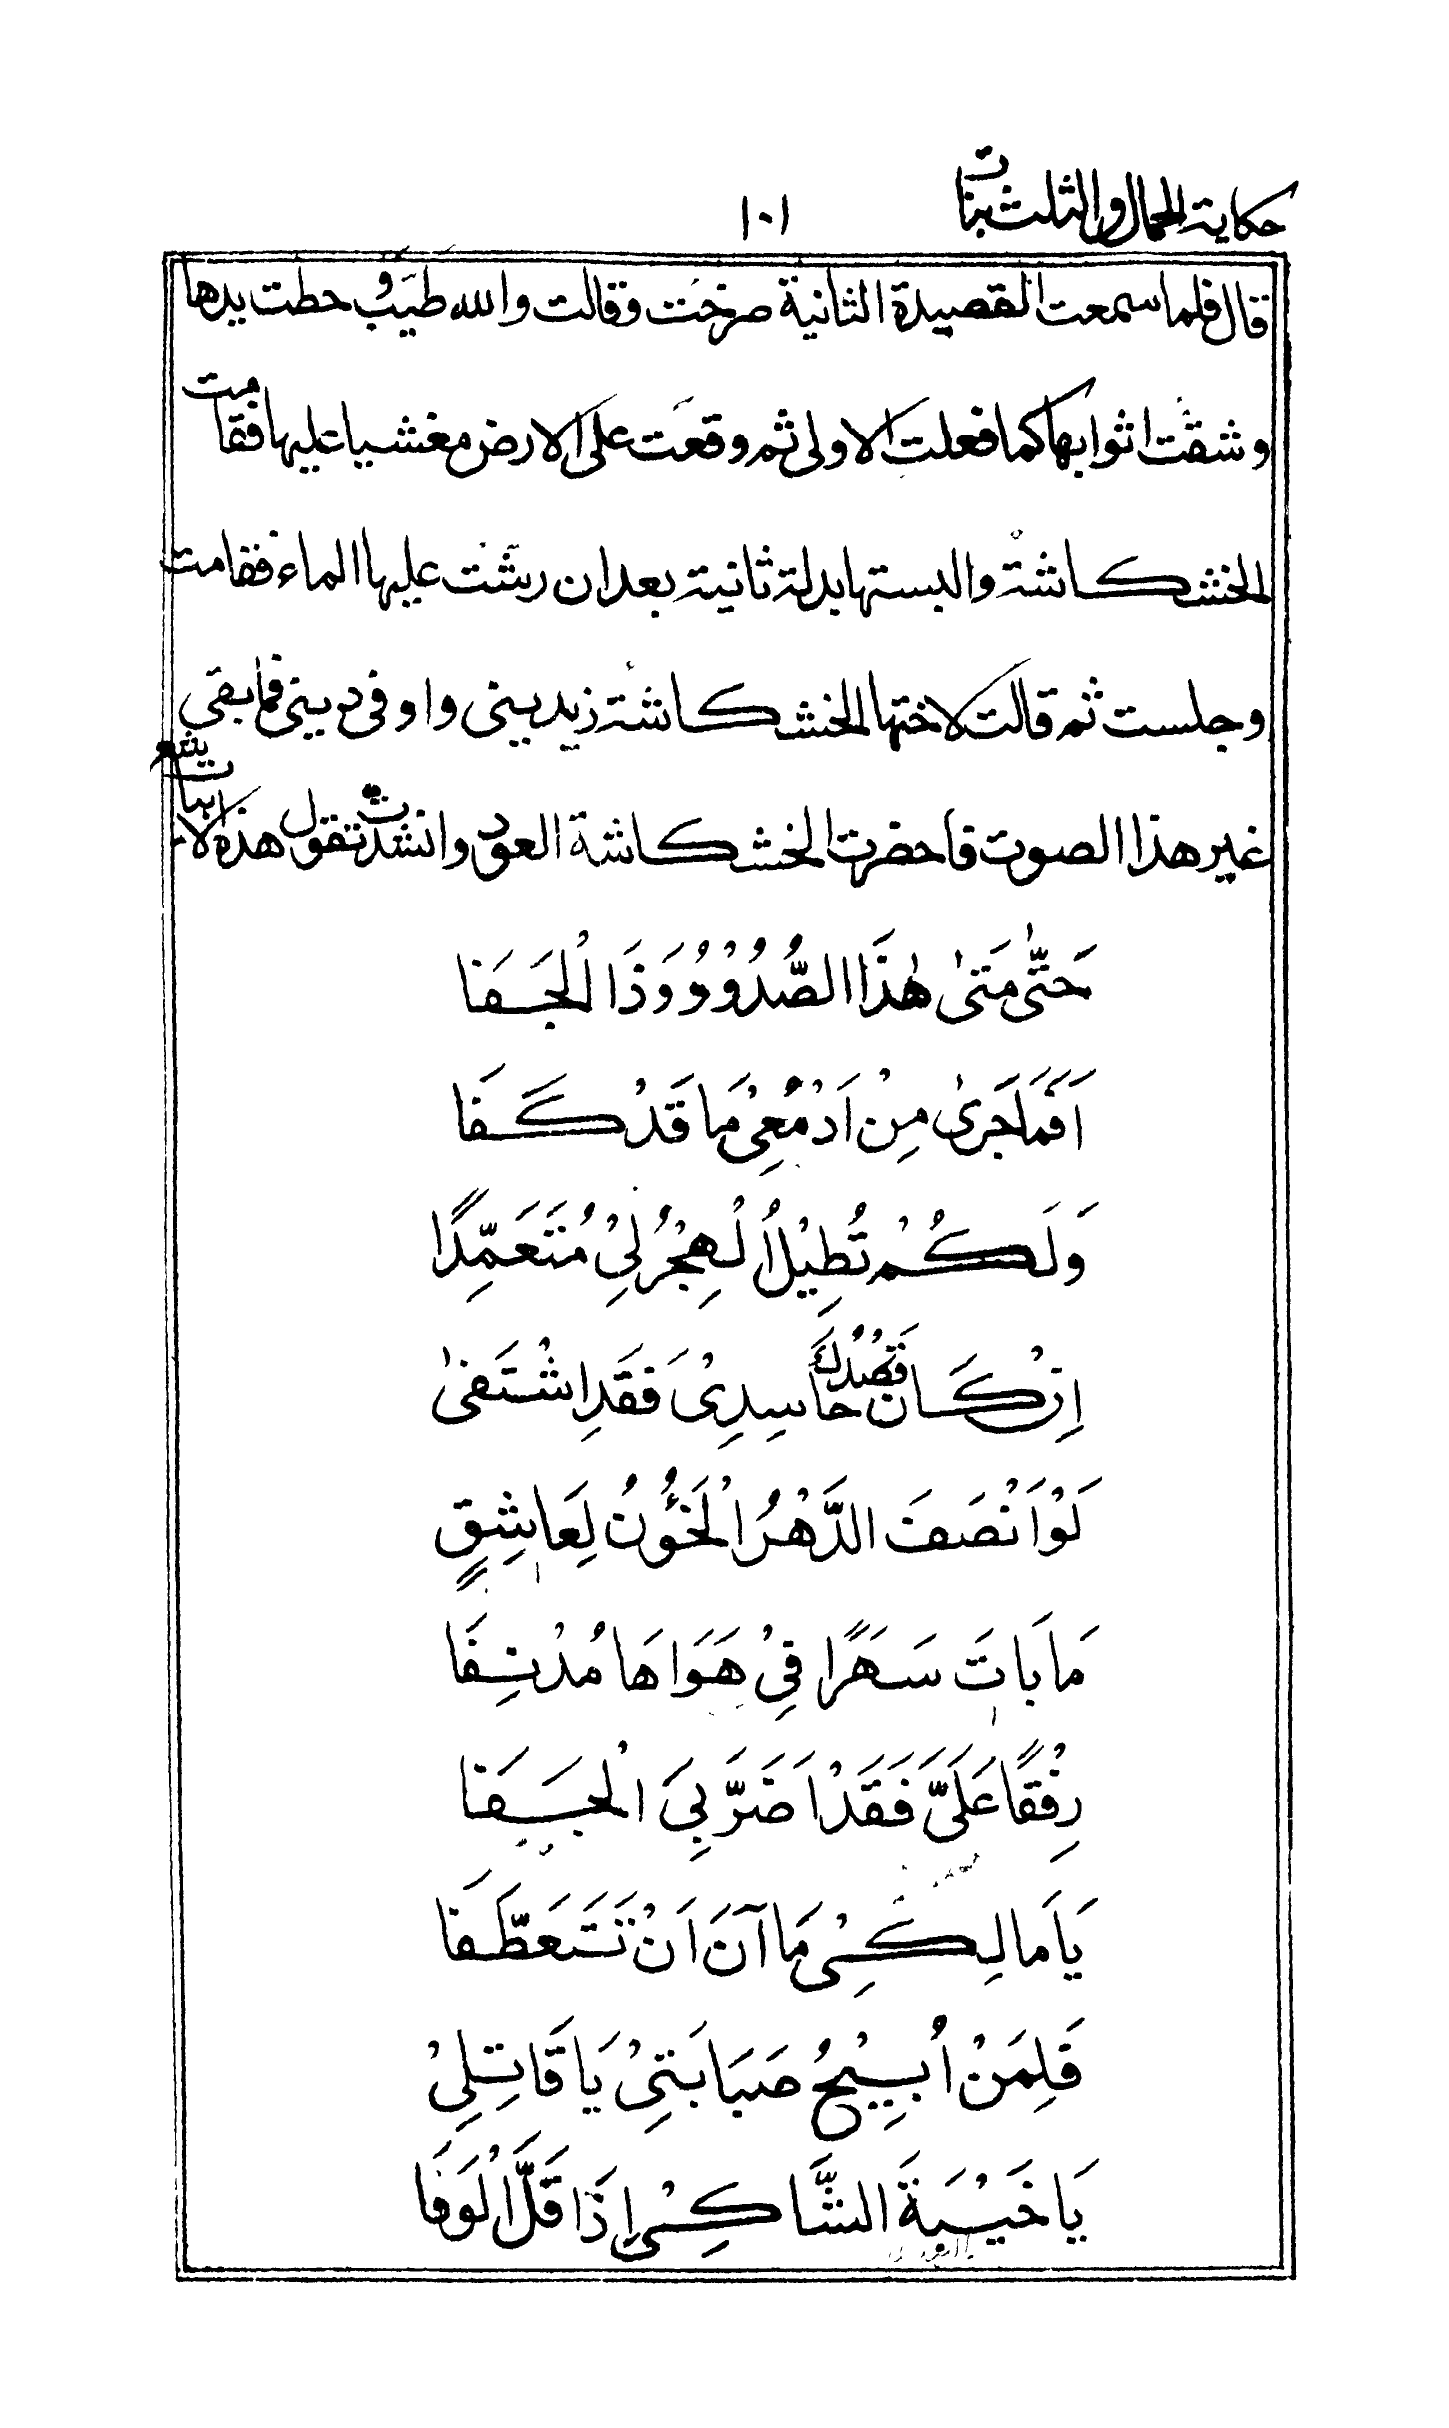 حكاية الحمال والثلث بنات
١٠١
قال فلما سمعت القصيدة الثانية صرخت وقالت والله طيب وحطت يدها
وشقت اثوابها كما فعلت الاولى ثم وقعت على الارض مغشيا عليها فقامت
الخشكاشة والبستها بدلة ثانية بعد ان رشت عليها الماء فقامت
وجلست ثم قالت لاختها الخشكاشة زيديني واوفى ديني فما بقي
غير هذا الصوت فاحضرت الخشكاشة العود وانشدت تقول هذه الابيات
حَتّٰى مَتَىٰ هٰذَا الصُّدُوْدُ وَذَا الْجَفَا
اَفَمَا جَرىٰ مِنْ اَدْمُعِيْ مَا قَدْ كَفَا
وَلَكُمْ تُطِيْلُ الْهِجْرُ لِيْ مُتَعَمِّدًا
اِنْ كَانَ قَصْدُكَ حَاسِدِيْ فَقَدِ اشْتَفىٰ
لَوْ اَنْصَفَ الدَّهْرُ الْخَؤُنُ لِعَاشِقٍ
مَا بَاتَ سَهَرًا فِيْ هَوَاهَا مُدْنِفَا
رِفْقًا عَلَيَّ فَقَدْ اَضَرَّ بِيَ الْجَفَا
يَا مَالِكِيْ مَا آنَ اَنْ تَتَعَطَّفَا
فَلِمَنْ اُبِيْحُ صَبَابَتِيْ يَا قَاتِلِيْ
يَا خَيْبَةَ الشَّاكِيْ اِذَا قَلَّ الْوَفَا